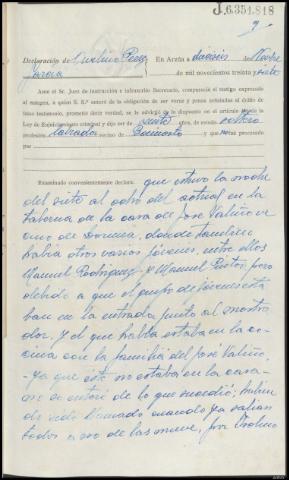 J.6351.818
9
Declaración de Avelino Pérez García
En Arzúa a dieciseis de Novbre
de mil novecientos treinta y siete
Ante el Sr. Juez de instrucción e infrascrito Secretario, compareció el testigo expresado
al margen, a quien S. S.ª enteró de la obligación de ser veraz y penas señaladas al delito de
falso testimonio, prometió decir verdad, se le advirtió de lo dispuesto en el artículo
Ley de Enjuiciamiento criminal y dijo ser de años, de estado soltero
profesión labrador vecino de y que no fue procesado
por
Examinado convenientemente declara: que estuvo la noche
del siete al ocho del actual en la
taberna de la casa de José Valiño ve
cino de donde tambien
habia otros varios jóvenes, entre ellos
Manuel Rodríguez y Manuel Pintos, pero
debido a que el grupo de jóvenes esta
ban en la entrada junto al mostra
dor, y el que habla estaba en la co
cina con la familia del José Valiño,
-ya que éste no estaba en la casa-
no se enteró de lo que sucedió; habien
do sido llamado cuando ya salian
todos a eso de las nueve, por